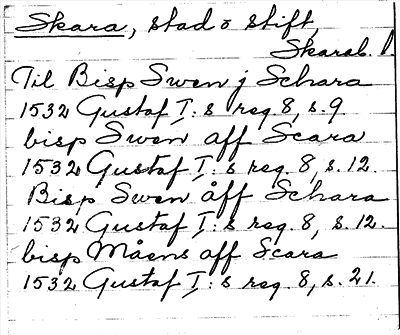 Skara, stad o stift,
Skarab. l.
Til Bisp Swen j Schara
1532 Gustaf I:s reg. 8, s. 9
bisp Swen aff Scara
1532 Gustaf I:s reg. 8, s. 12.
Bisp Swen åff Schara
1532 Gustaf I:s reg. 8, s. 12.
bisp Måens aff Scara
1532 Gustaf I:s reg. 8, s. 21.